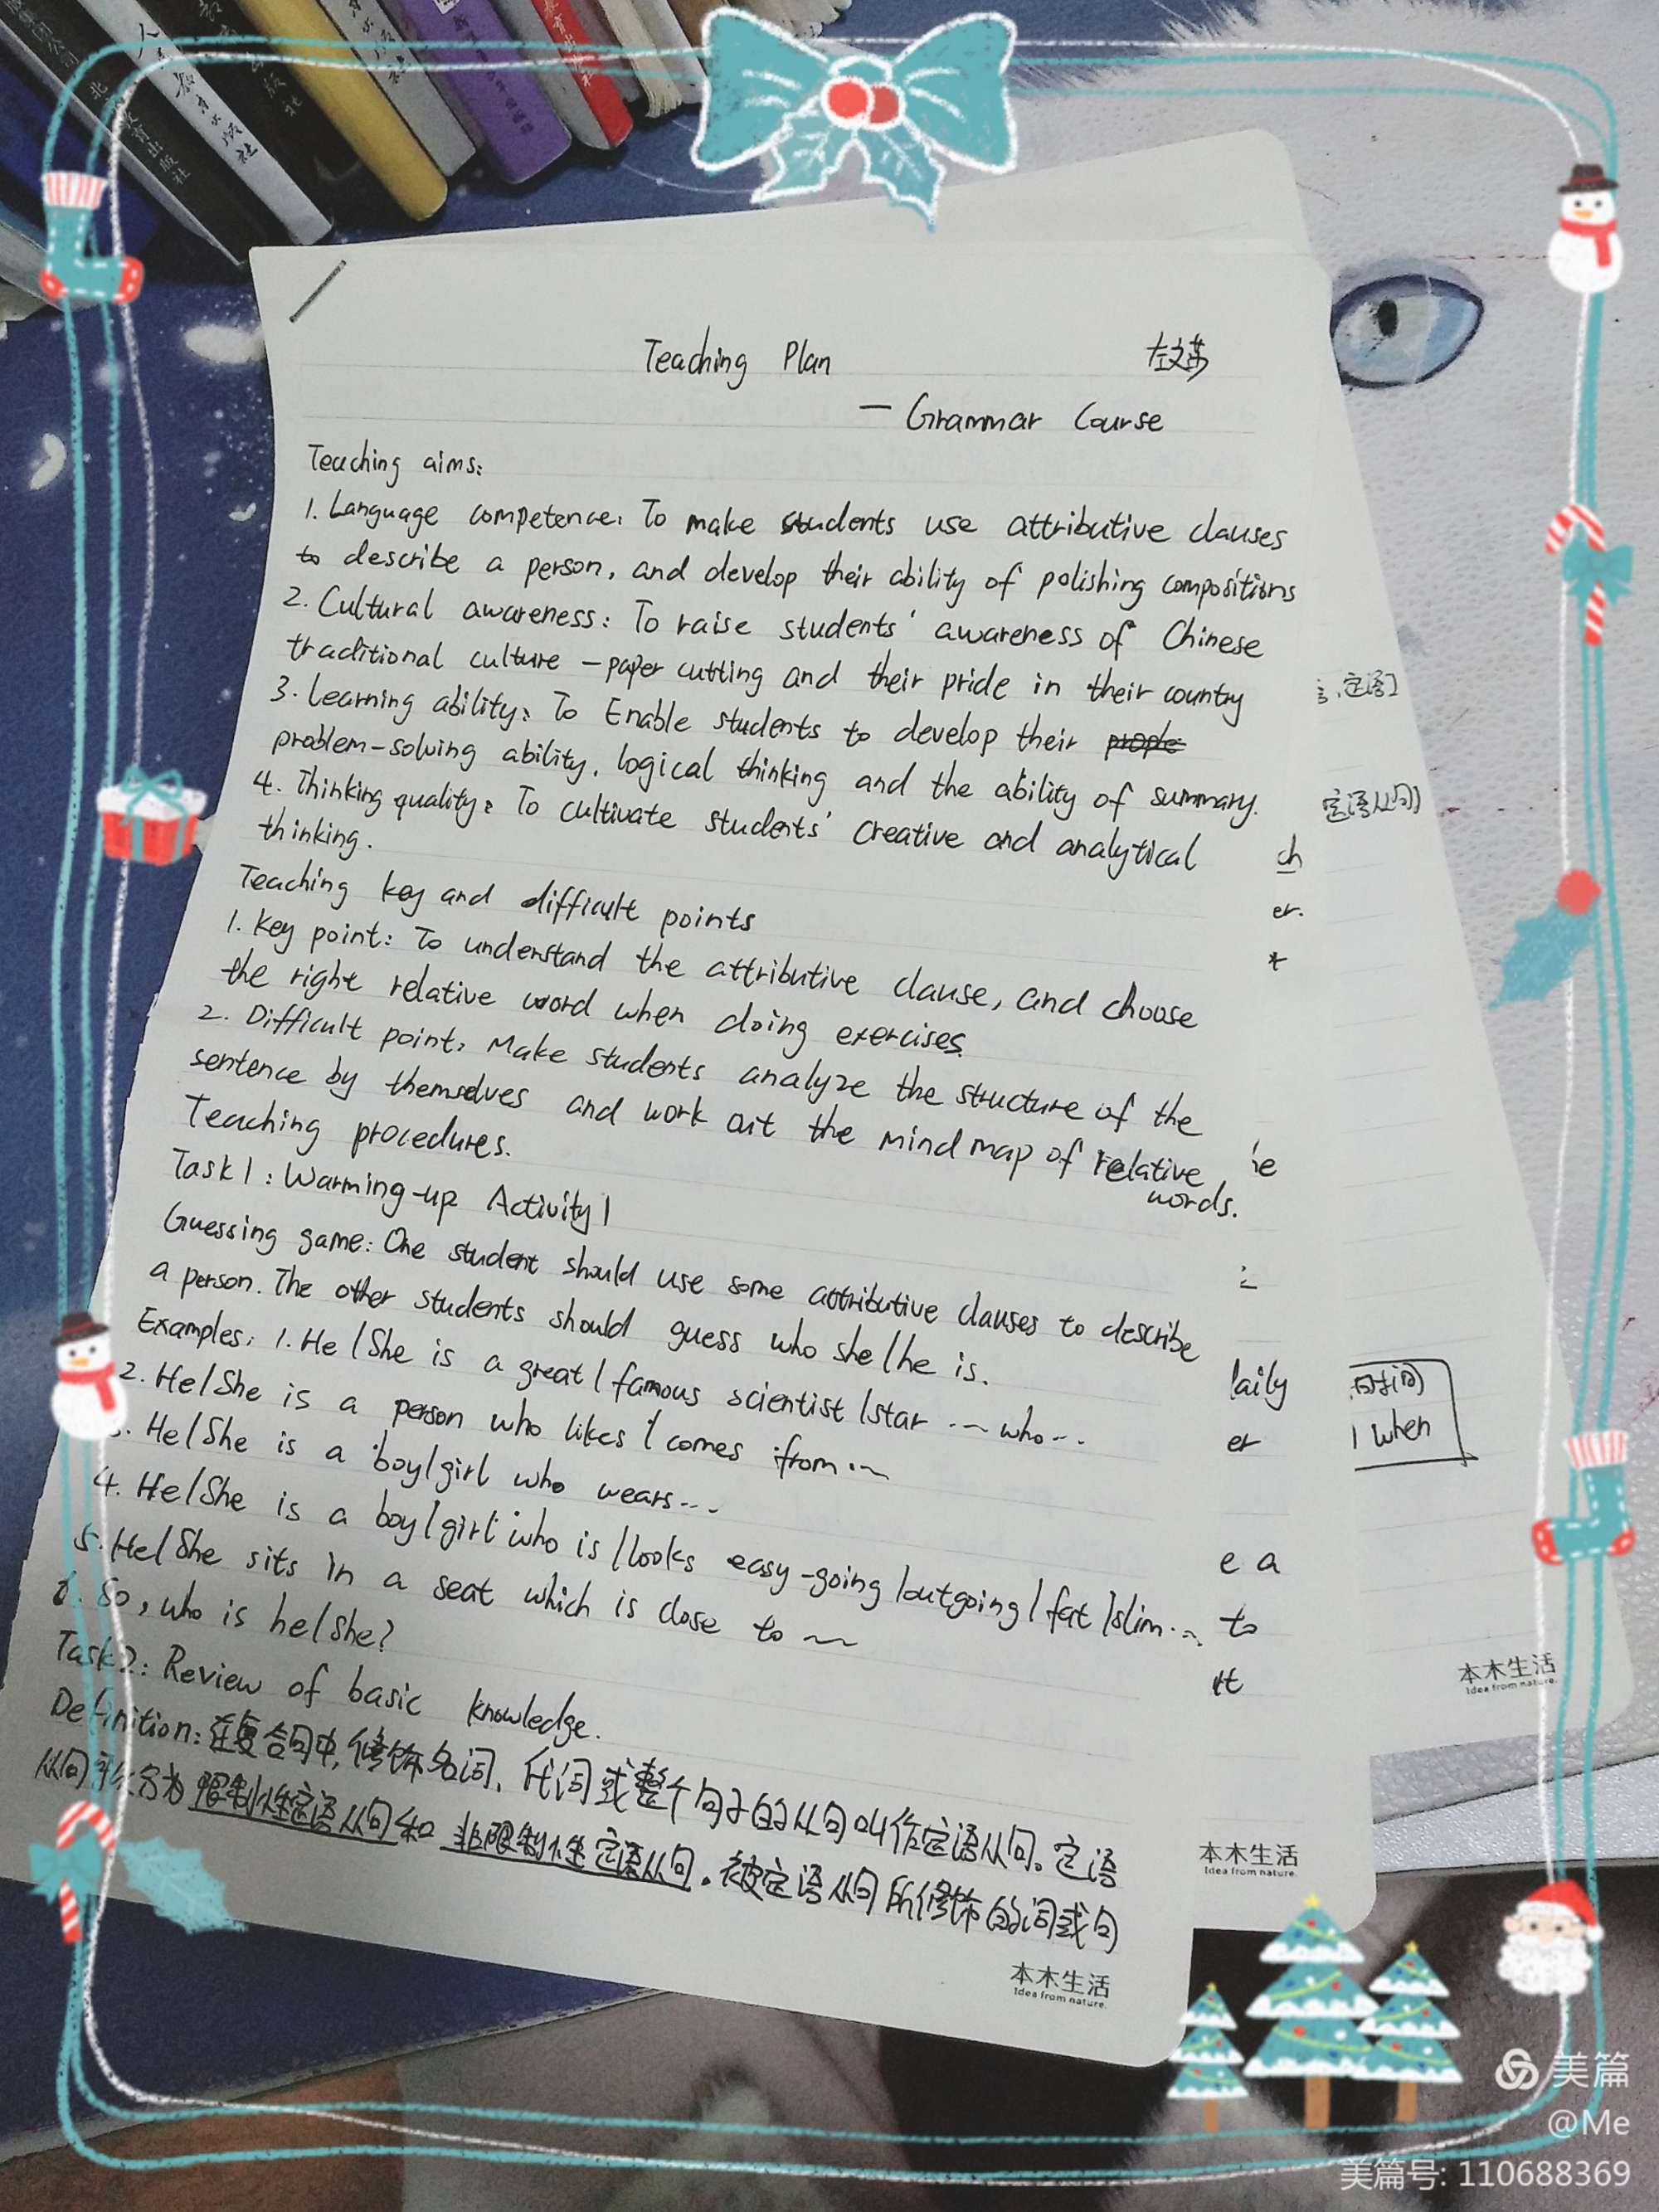 北京教育出版社
人民教育出版社
Teaching Plan
左文莎
— Grammar Course
Teaching aims:
1. Language competence: To make students use attributive clauses
to describe a person, and develop their ability of polishing compositions
2. Cultural awareness: To raise students' awareness of Chinese
traditional culture - paper cutting and their pride in their country
3. Learning ability: To Enable students to develop their
problem-solving ability, logical thinking and the ability of summary.
4. Thinking quality: To cultivate students' creative and analytical
thinking.
Teaching key and difficult points
1. Key point: To understand the attributive clause, and choose
the right relative word when doing exercises.
2. Difficult point: Make students analyze the structure of the
sentence by themselves and work out the mind map of relative
words.
Teaching procedures.
Task 1: Warming-up Activity 1
Guessing game: One student should use some attributive clauses to describe
a person. The other students should guess who she/he is.
Examples: 1. He/She is a great/famous scientist/star ... who...
2. He/She is a person who likes/comes from ...
3. He/She is a boy/girl who wears...
4. He/She is a boy/girl who is/looks easy-going/outgoing/fat/slim...
5. He/She sits in a seat which is close to ...
6. So, who is he/she?
Task 2: Review of basic knowledge.
Definition: 在复合句中,修饰名词、代词或整个句子的从句叫作定语从句。定语
从句可以分为限制性定语从句和非限制性定语从句。被定语从句所修饰的词或句
本木生活
Idea from nature.
ch
er.
t
laily
er
e a
to
本木生活
Idea from nature.
定语]
定语从句)
时间)
when
本木生活
Idea from nature.
美篇
@Me
美篇号: 110688369